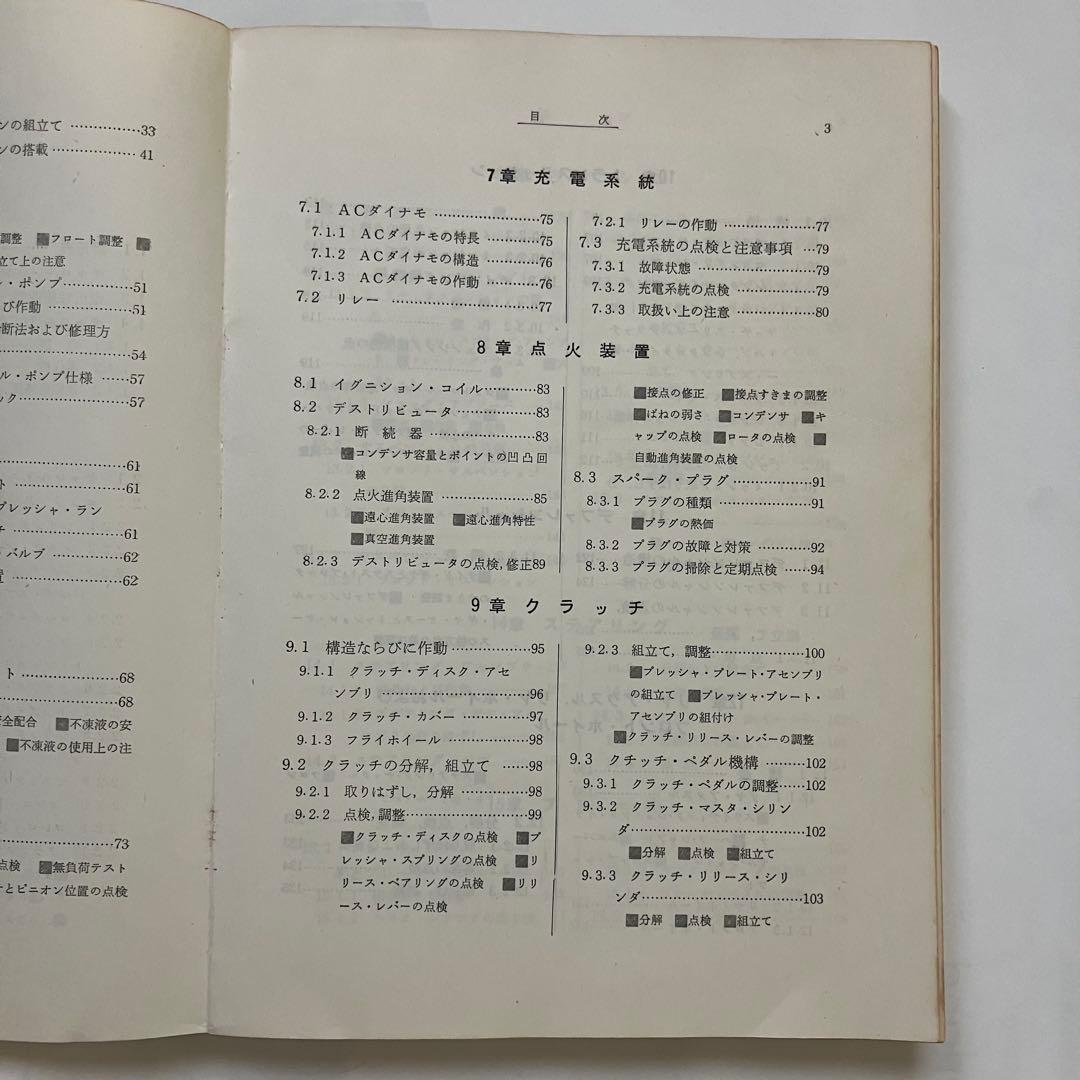 ンの組立て ……………33
ンの搭載 ……………… 41
調整 ■フロート調整 ■
立て上の注意
ル・ポンプ……………51
び作動 ………………51
断法および修理方
………………………54
ル・ポンプ仕様 ……57
ック……………………57
………………………61
ト ……………………61
プレッシャ・ラン
チ ……………………61
バルブ ………………62
置 ……………………62
ト ……………………68
………………………68
全配合 ■不凍液の安
■不凍液の使用上の注
………………………73
点検 ■無負荷テスト
とピニオン位置の点検
目 次
3
7章 充電系統
7.1 ACダイナモ ……………………75
7.1.1 ACダイナモの特長 …………75
7.1.2 ACダイナモの構造 …………76
7.1.3 ACダイナモの作動 …………76
7.2 リレー ……………………………77
7.2.1 リレーの作動 ………………77
7.3 充電系統の点検と注意事項 …79
7.3.1 故障状態 ……………………79
7.3.2 充電系統の点検 ……………79
7.3.3 取扱い上の注意 ……………80
8章 点火装置
8.1 イグニション・コイル…………83
8.2 デストリビュータ ………………83
8.2.1 断続器 ………………………83
■コンデンサ容量とポイントの凹凸回
線
8.2.2 点火進角装置 ………………85
■遠心進角装置 ■遠心進角特性
■真空進角装置
8.2.3 デストリビュータの点検,修正89
■接点の修正 ■接点すきまの調整
■ばねの弱さ ■コンデンサ ■キ
ャップの点検 ■ロータの点検 ■
自動進角装置の点検
8.3 スパーク・プラグ ………………91
8.3.1 プラグの種類 ………………91
■プラグの熱価
8.3.2 プラグの故障と対策 ………92
8.3.3 プラグの掃除と定期点検 ……94
9章 クラッチ
9.1 構造ならびに作動 ………………95
9.1.1 クラッチ・ディスク・アセ
ンブリ ……………………………96
9.1.2 クラッチ・カバー …………97
9.1.3 フライホイール ……………98
9.2 クラッチの分解,組立て ……98
9.2.1 取りはずし,分解 …………98
9.2.2 点検,調整……………………99
■クラッチ・ディスクの点検 ■プ
レッシャ・スプリングの点検 ■リ
リース・ベアリングの点検 ■リリ
ース・レバーの点検
9.2.3 組立て,調整…………………100
■プレッシャ・プレート・アセンブリ
の組立て ■プレッシャ・プレート・
アセンブリの組付け
■クラッチ・リリース・レバーの調整
9.3 クチッチ・ペダル機構 ………102
9.3.1 クラッチ・ペダルの調整……102
9.3.2 クラッチ・マスタ・シリン
ダ……………………………………102
■分解 ■点検 ■組立て
9.3.3 クラッチ・リリース・シリ
ンダ…………………………………103
■分解 ■点検 ■組立て